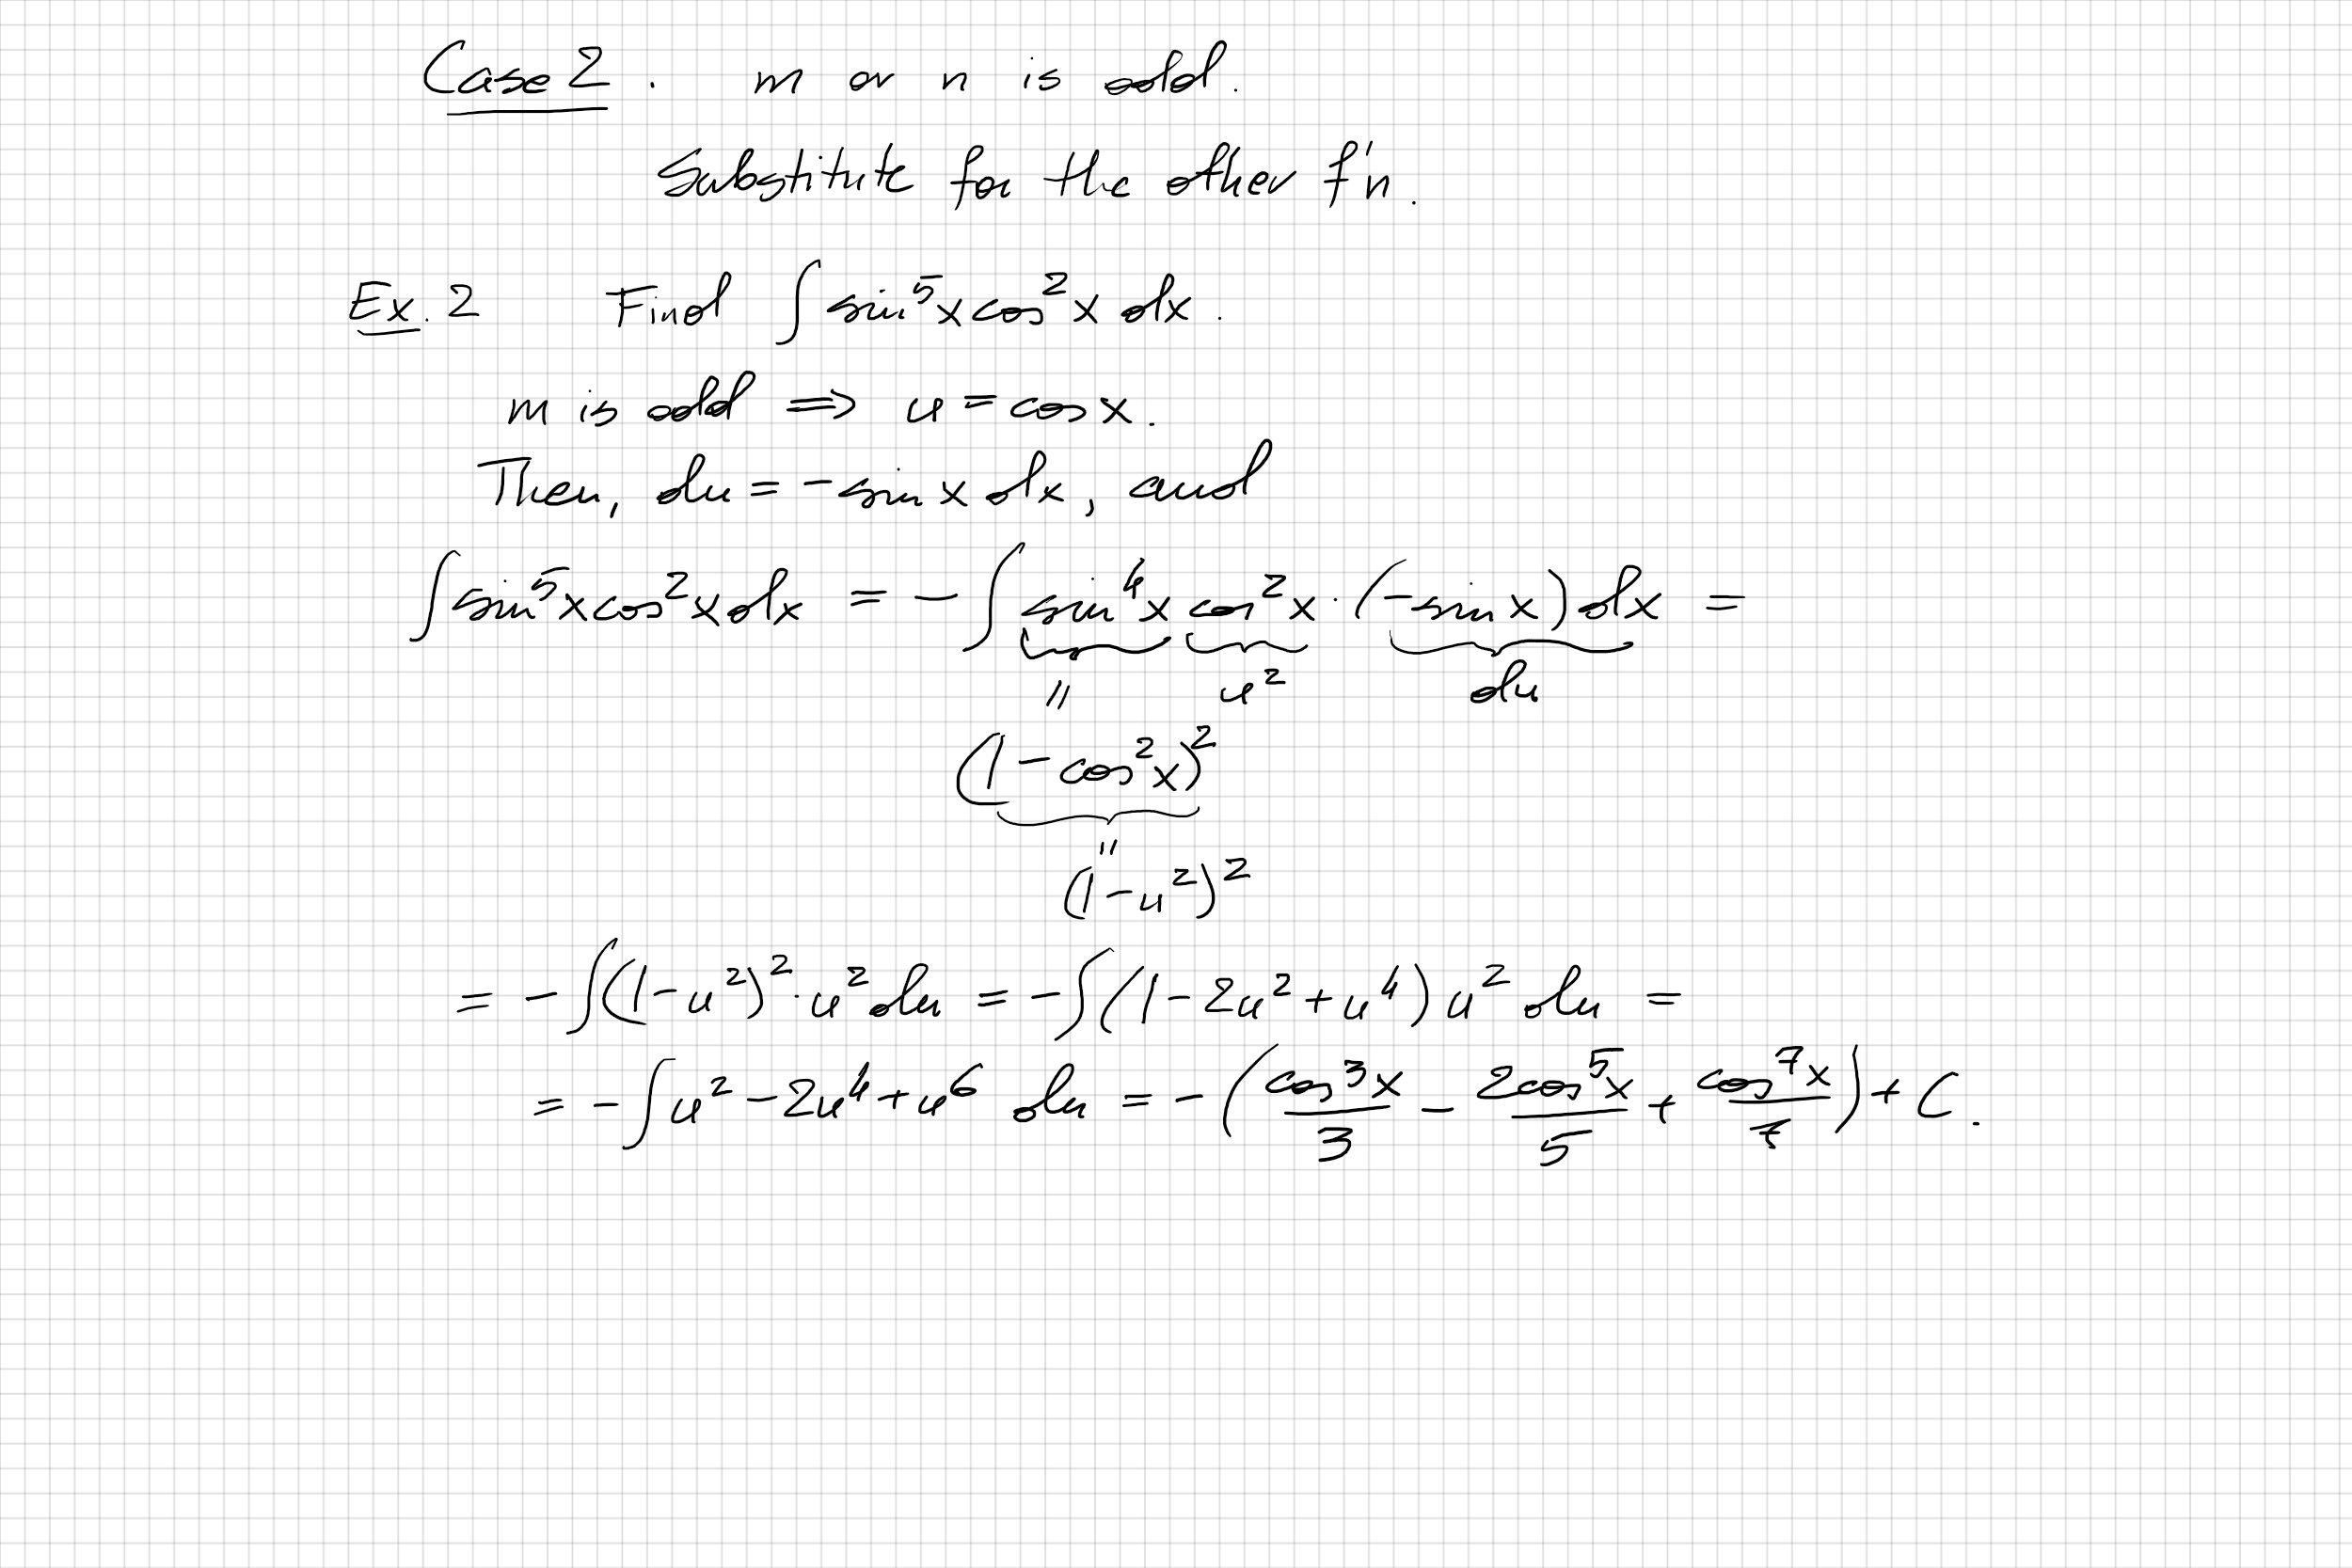 Case 2. m or n is odd.
Substitute for the other f'n.
Ex. 2 Find ∫ sin⁵x cos²x dx.
m is odd ⟹ u = cos x.
Then, du = -sin x dx, and
∫ sin⁵x cos²x dx = - ∫ sin⁴x cos²x · (-sin x) dx =
= u² du
(1 - cos²x)²
=
(1 - u²)²
= - ∫ (1 - u²)² · u² du = - ∫ (1 - 2u² + u⁴) u² du =
= - ∫ u² - 2u⁴ + u⁶ du = - (cos³x/3 - 2cos⁵x/5 + cos⁷x/7) + C.